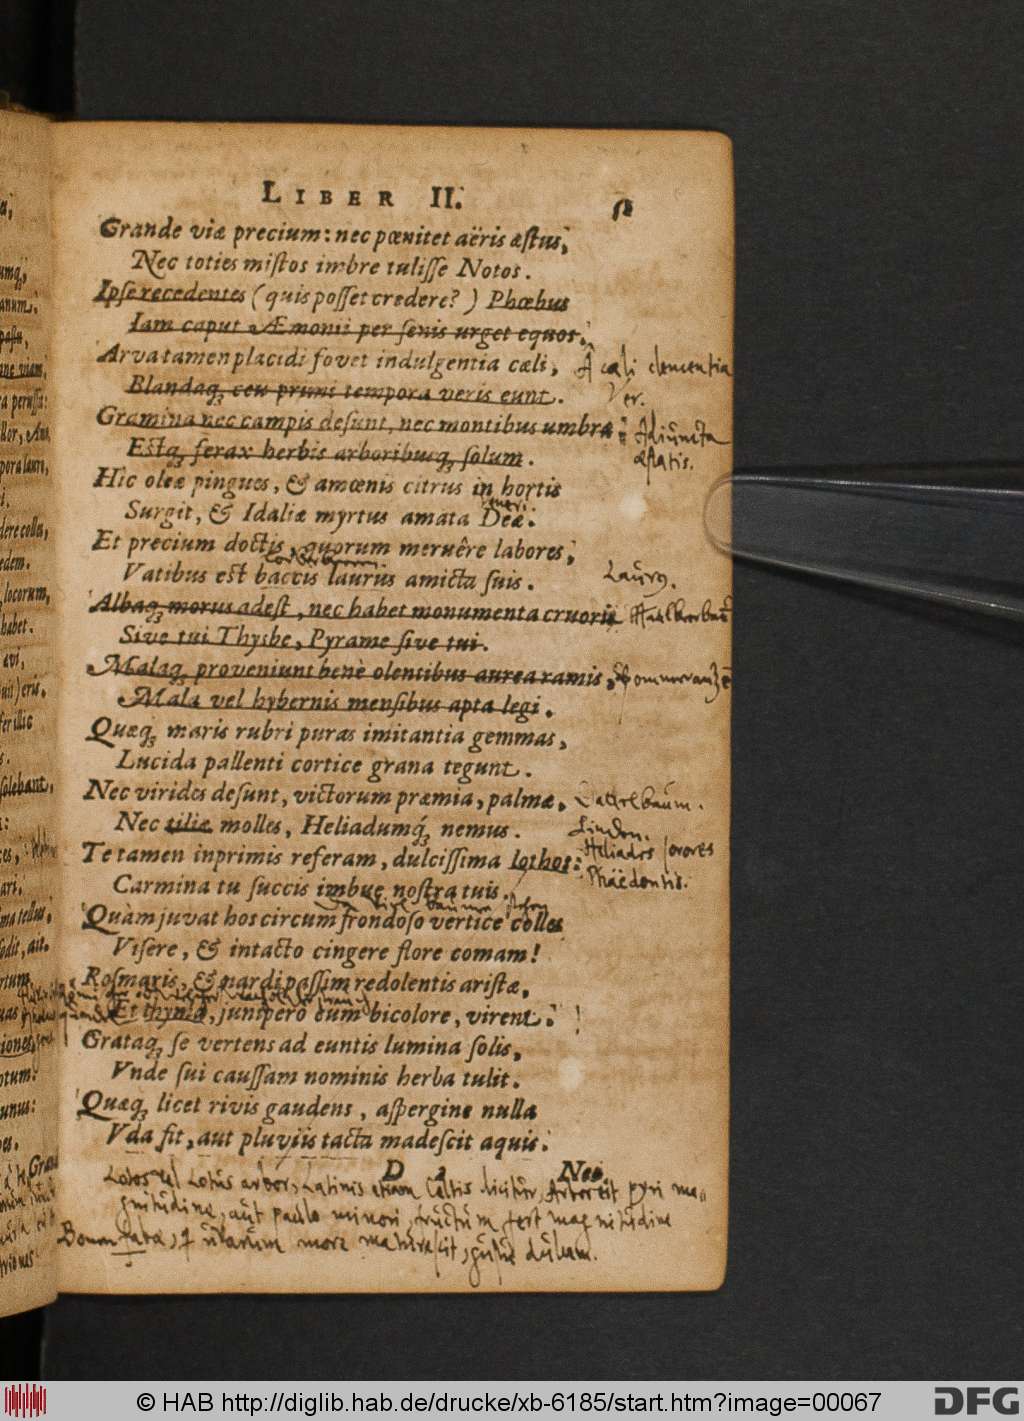 LIBER II.
Grande viæ precium: nec pœnitet aëris æstus,
Nec toties mistos imbre tulisse Notos.
Ipse recedentes (quis posset credere?) Phœbus
Iam caput Æmonii per senis urget equos.
Arva tamen placidi fovet indulgentia cæli, cæli clementia
Blandaq́; ceu primi tempora veris eunt. Ver.
Gramina nec campis desunt, nec montibus umbra: Adiuncta
Estq́; ferax herbis arboribusq́; solum. æstatis.
Hic oleæ pingues, & amœnis citrus in hortis
Veneri.
Surgit, & Idaliæ myrtus amata Deæ.
Et precium doctis, quorum meruêre labores,
Vatibus est baccis laurus amicta suis. Laurus.
Albaq́; morus adest, nec habet monumenta cruoris
Sive tui Thysbe, Pyrame sive tui.
Malaq́; proveniunt benè olentibus aurea ramis, Pommerantzē
Mala vel hybernis mensibus apta legi.
Quæq́; maris rubri puras imitantia gemmas,
Lucida pallenti cortice grana tegunt.
Nec virides desunt, victorum præmia, palmæ, Dattelbaum.
Nec tiliæ molles, Heliadumq́; nemus. Linden.
Heliades sorores
Te tamen inprimis referam, dulcissima lothos:
Phaëdontis.
Carmina tu succis imbue nostra tuis.
Quàm juvat hos circum frondoso vertice colles
Visere, & intacto cingere flore comam!
Rosmaris, & nardi passim redolentis aristæ,
Et thyma, junipero cum bicolore, virent. !
Grataq́; se vertens ad euntis lumina solis,
Vnde sui caussam nominis herba tulit.
Quæq́; licet rivis gaudens, aspergine nulla
Vda fit, aut pluviis tacta madescit aquis.
D 2 Nec
Lotos vel Lotus arbor, Latinis etiam Celtis dicitur, Arbor est pyri ma-
gnitudine, aut paulo minori, fructum fert magnitudine
fabæ, uvarum more maturescit, gustu dulcem.
© HAB http://diglib.hab.de/drucke/xb-6185/start.htm?image=00067
DFG